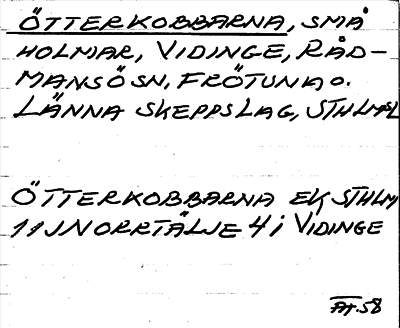 ÖTTERKOBBARNA, SMÅ
HOLMAR, VIDINGE, RÅD-
MANSÖ SN, FRÖTUNA O.
LÄNNA SKEPPSLAG, STHLMSL
ÖTTERKOBBARNA EK STHLM
11J NORRTÄLJE 4 i VIDINGE
AT.58